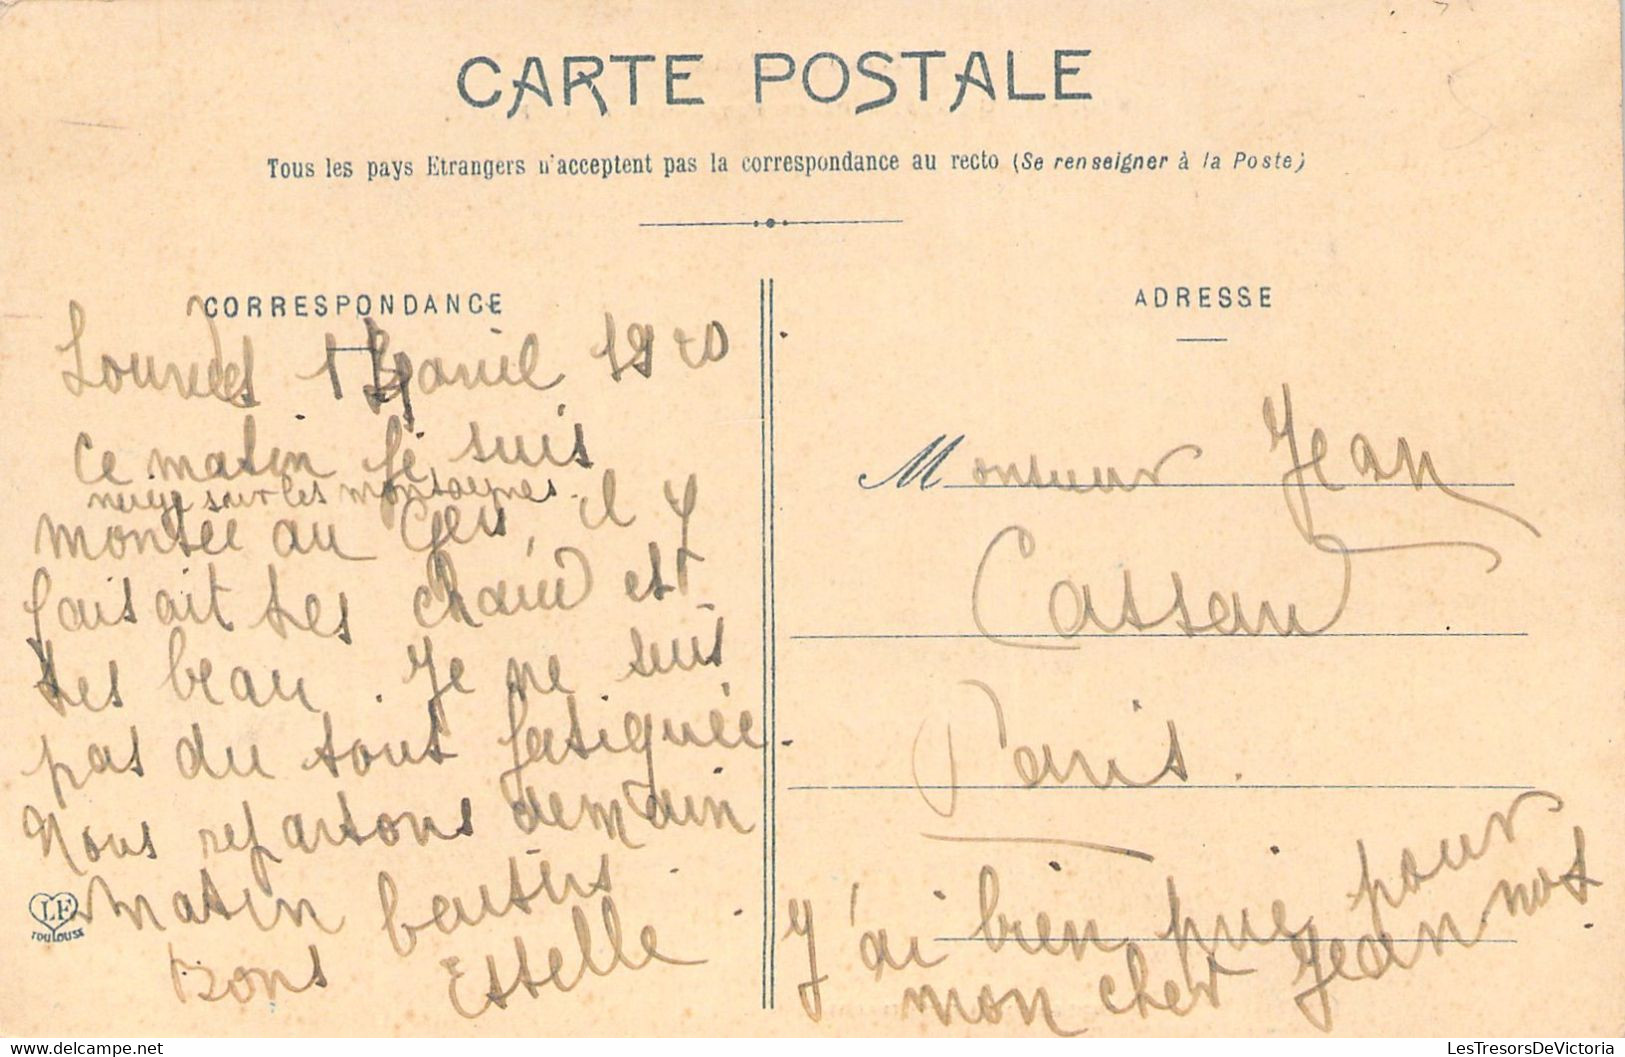 CARTE POSTALE
Tous les pays Etrangers n'acceptent pas la correspondance au recto (Se renseigner à la Poste)
CORRESPONDANCE
Lourdes avril 1920
ce matin je suis
neige sur les montagnes
montée au il y
faisait tes chaud est
tes beau. Je ne suis
pas du tout fatiguée.
Nous repartons demain
matin baisers
Bons Estelle
LF
TOULOUSE
ADRESSE
Monsieur Jean
Cassan
Paris.
J'ai bien prie pour
mon cher Jean nos
LesTresorsDeVictoria